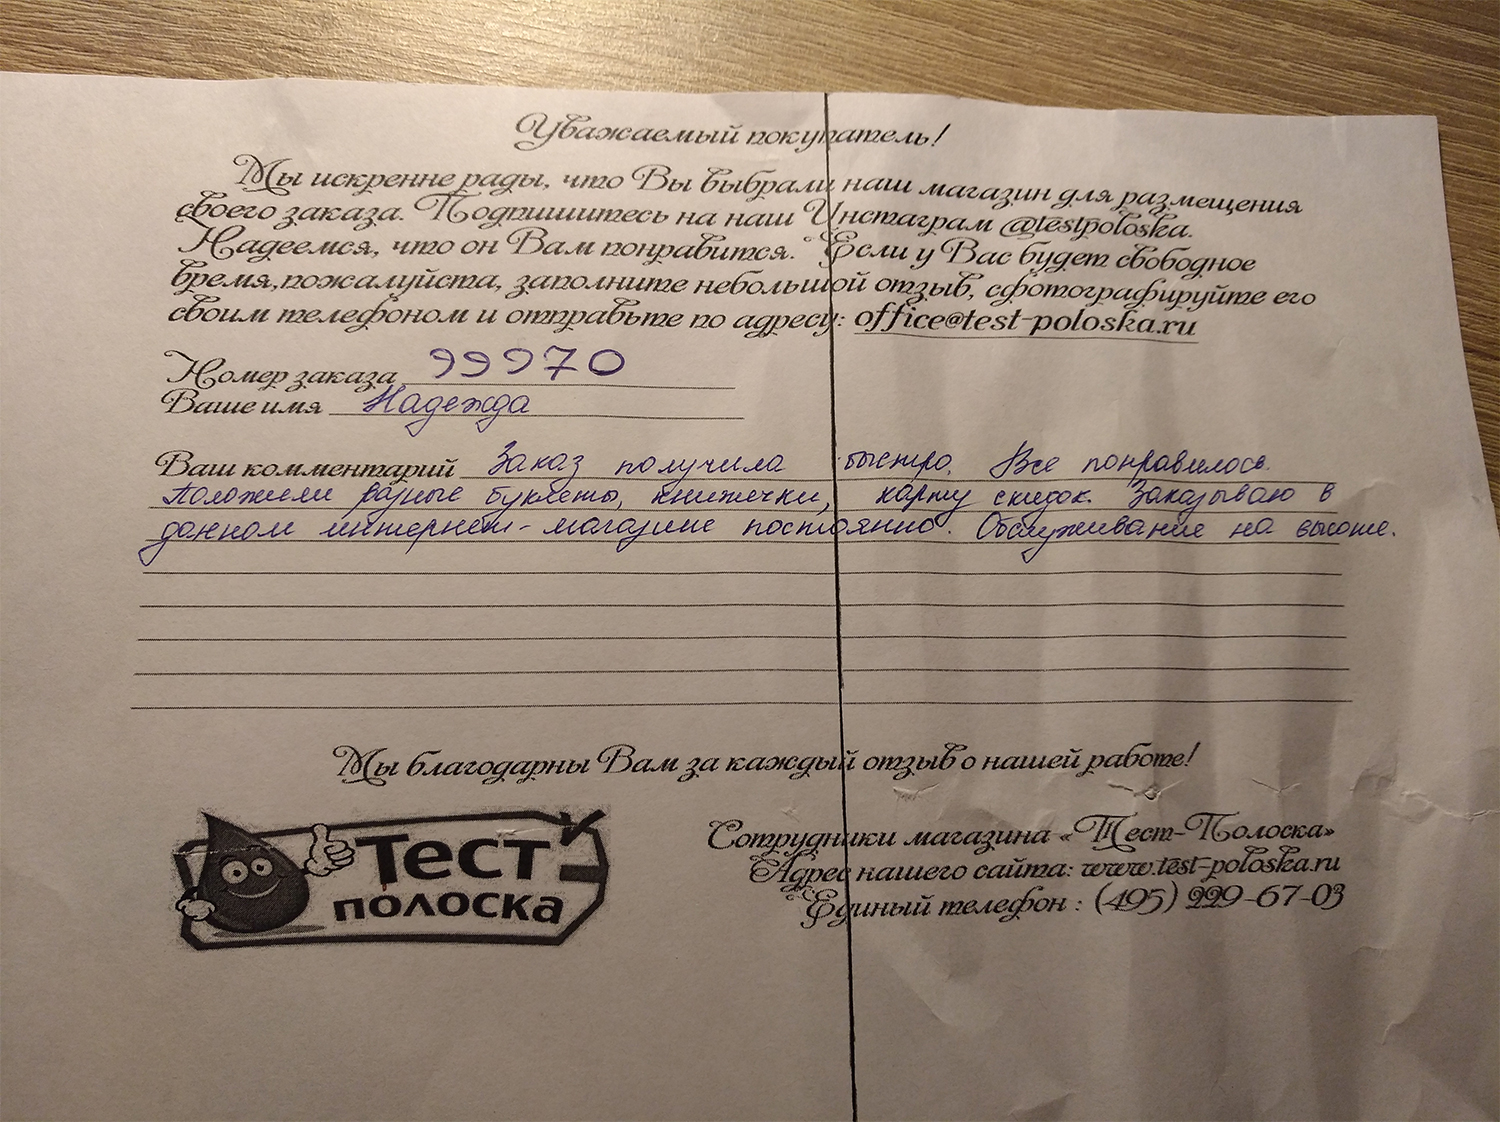 Уважаемый покупатель!
Мы искренне рады, что Вы выбрали наш магазин для размещения
своего заказа. Подпишитесь на наш Инстаграм @testpoloska.
Надеемся, что он Вам понравится. Если у Вас будет свободное
время,пожалуйста, заполните небольшой отзыв, сфотографируйте его
своим телефоном и отправьте по адресу: office@test-poloska.ru
Номер заказа 99970
Ваше имя Надежда
Ваш комментарий Заказ получила быстро. Все понравилось.
Положили разные буклеты, книжечки, карту скидок. Заказываю в
данном интернет-магазине постоянно. Обслуживание на высоте.
Мы благодарны Вам за каждый отзыв о нашей работе!
Тест
полоска
Сотрудники магазина «Тест-Полоска»
Адрес нашего сайта: www.test-poloska.ru
Единый телефон : (495) 229-67-03